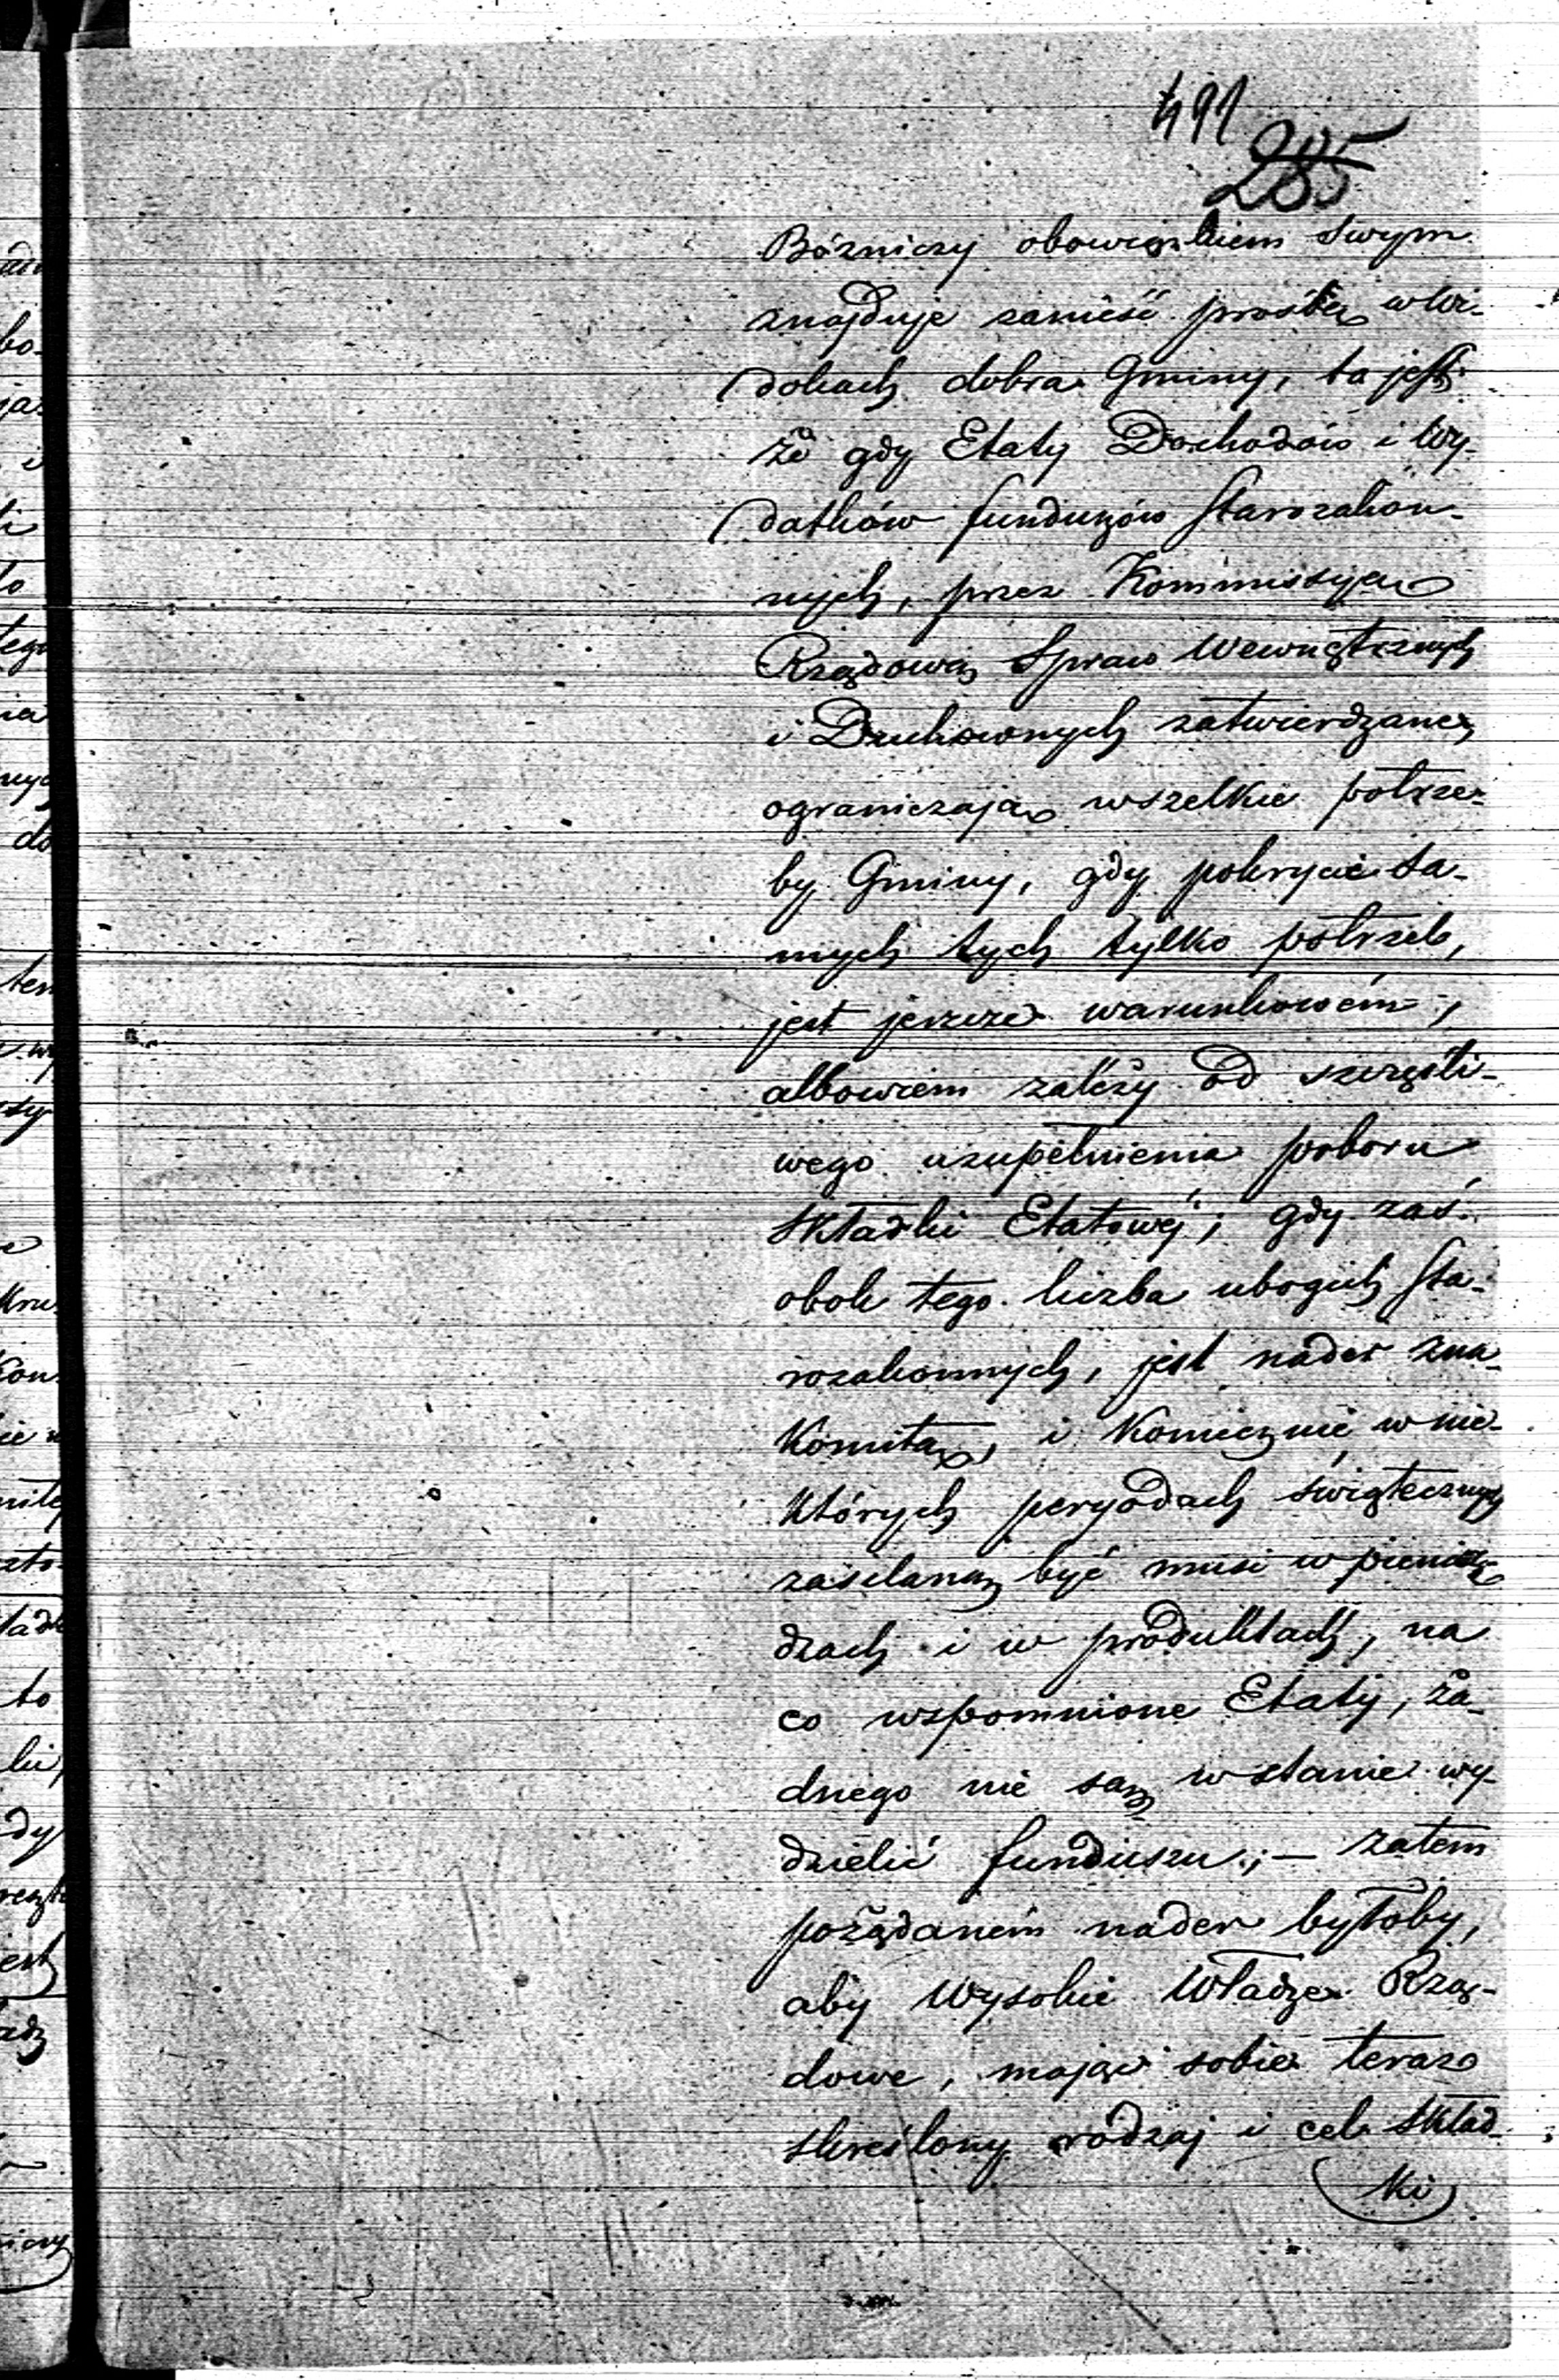 491
285
Bóżniczy obowiązkiem swym
znajduje zanieść prośbę w wi-
dokach dobra Gminy, to jest:
że gdy Etaty Dochodów i Wy-
datków funduszów Starozakon-
nych, przez Kommissyą
Rządową Spraw Wewnętrznych
i Duchownych zatwierdzane,
ograniczają wszelkie potrze-
by Gminy, gdy pokrycie sa-
mych tych tylko potrzeb,
jest jeszcze warunkowém,
albowiem zależy od szczęśli-
wego uzupełnienia poboru
Składki Etatowéj; gdy zaś
obok tego liczba ubogich Sta-
rozakonnych, jest nader zna-
komitą, i koniecznie w nie-
których peryodach świątecznych
zasilaną być musi w pienią-
dzach i w produktach, na
co wspomnione Etaty, ża-
dnego nie są w stanie wy-
dzielić funduszu; — zatem
pożądaném nader byłoby,
aby Wysokie Władze Rzą-
dowe, mając sobie teraz
skreślony rodzaj i cel Skład-
ki